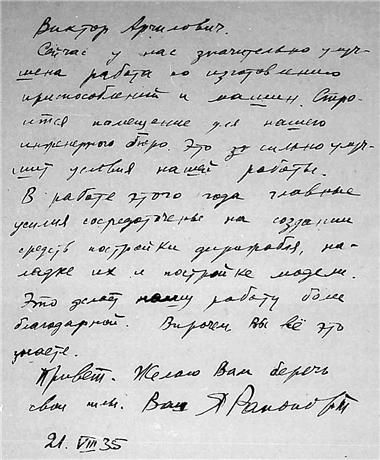 Виктор Арчилович.
Сейчас у нас значительно улуч-
шена работа по изготовлению
приспособлений и машин. Стро-
ится помещение для нашего
инженерного бюро. Это за сильно улуч-
шит условия нашей работы.
В работе этого года главные
усилия сосредоточены на создании
средств постройки дирижабля, на-
ладке их и постройке модели.
Это делает нашу работу более
благодарной. Впрочем, Вы всё это
знаете.
Привет. Желаю Вам беречь
свои силы. Ваш Я Рапопорт
21. VIII 35